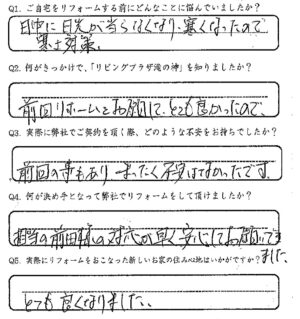 Q1. ご自宅をリフォームする前にどんなことに悩んでいましたか?
日中に日光が当らなくなり、寒くなったので
寒さ対策。
Q2. 何がきっかけで、「リビングプラザ滝の神」を知りましたか?
前回リホームをお願して、とても良かったので、
Q3. 実際に弊社でご契約を頂く際、どのような不安をお持ちでしたか?
前回の事もあり、まったく不安はなかったです。
Q4. 何が決め手となって弊社でリフォームをして頂けましたか?
担当の前田様の対応が早く安心してお願いできました。
Q5. 実際にリフォームをおこなった新しいお家の住み心地はいかがですか?
とても良くなりました。